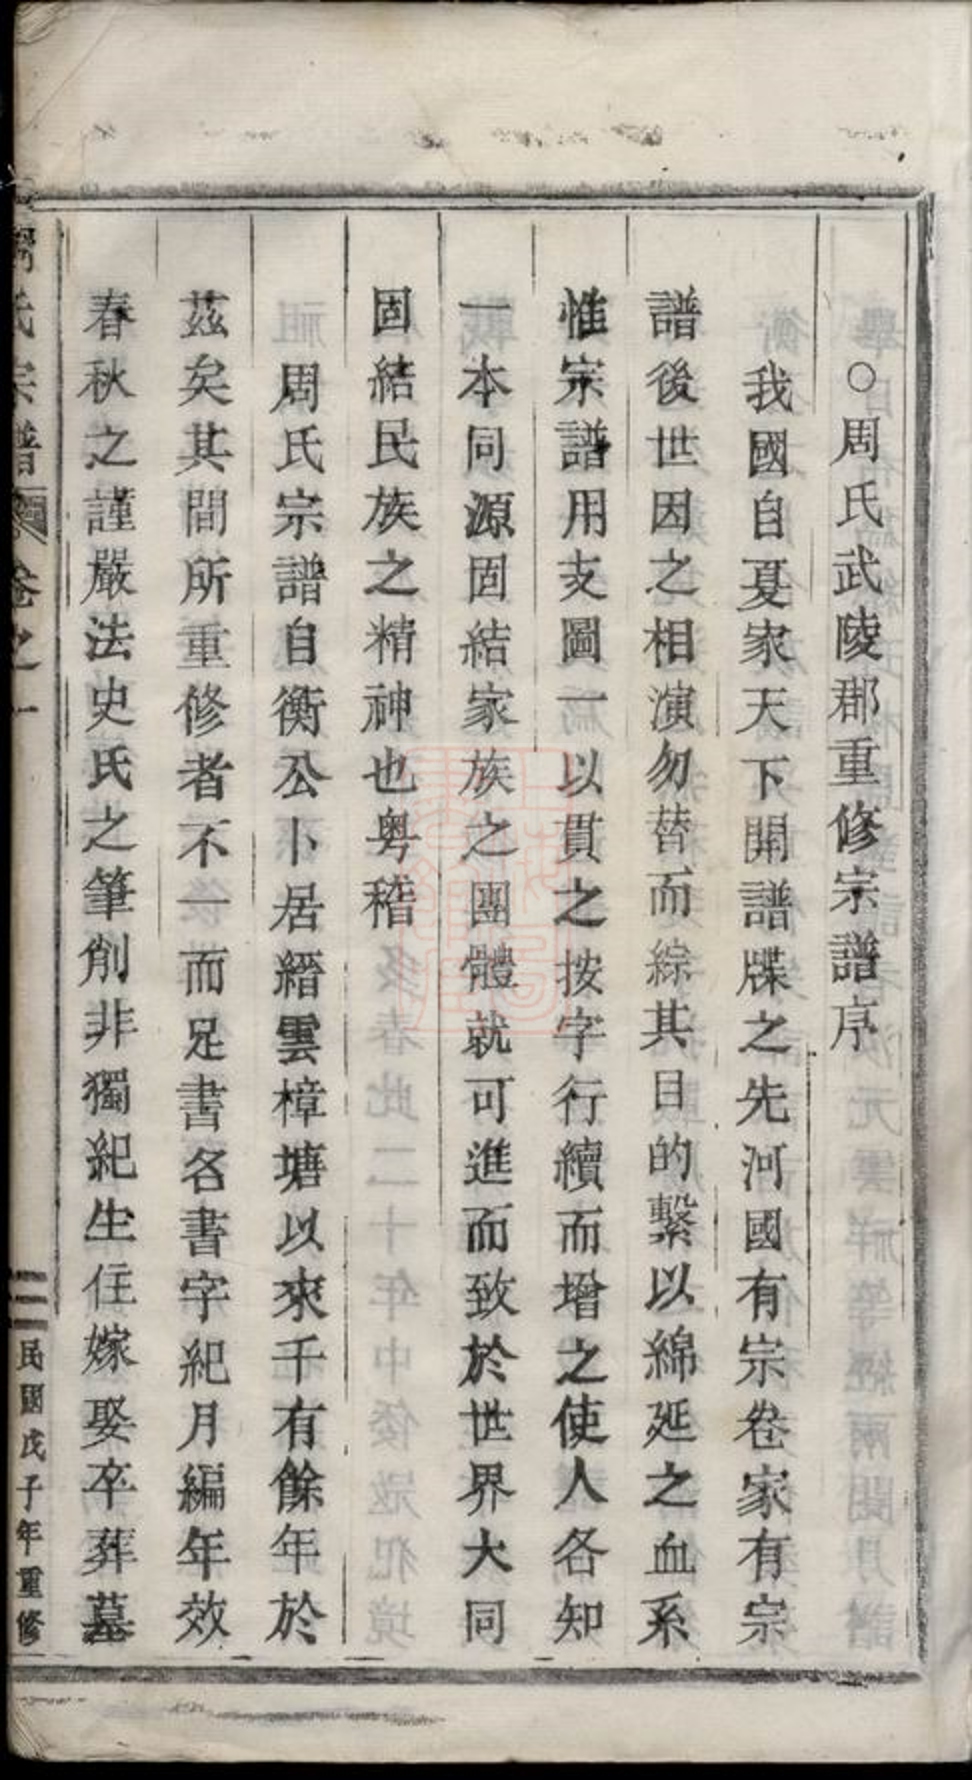 ○周氏武陵郡重修宗譜序
我國自夏家天下開譜牒之先河國有宗卷家有宗
譜後世因之相演勿替而綜其目的繫以綿延之血系
惟宗譜用支圖一以貫之按字行續而增之使人各知
一本同源固結家族之團體就可進而致於世界大同
固結民族之精神也粤稽
周氏宗譜自衡公卜居縉雲樟塘以來千有餘年於
茲矣其間所重修者不一而足書名書字紀月編年效
春秋之謹嚴法史氏之筆削非獨紀生住嫁娶卒葬墓
周氏宗譜 卷之一 民國戊子年重修